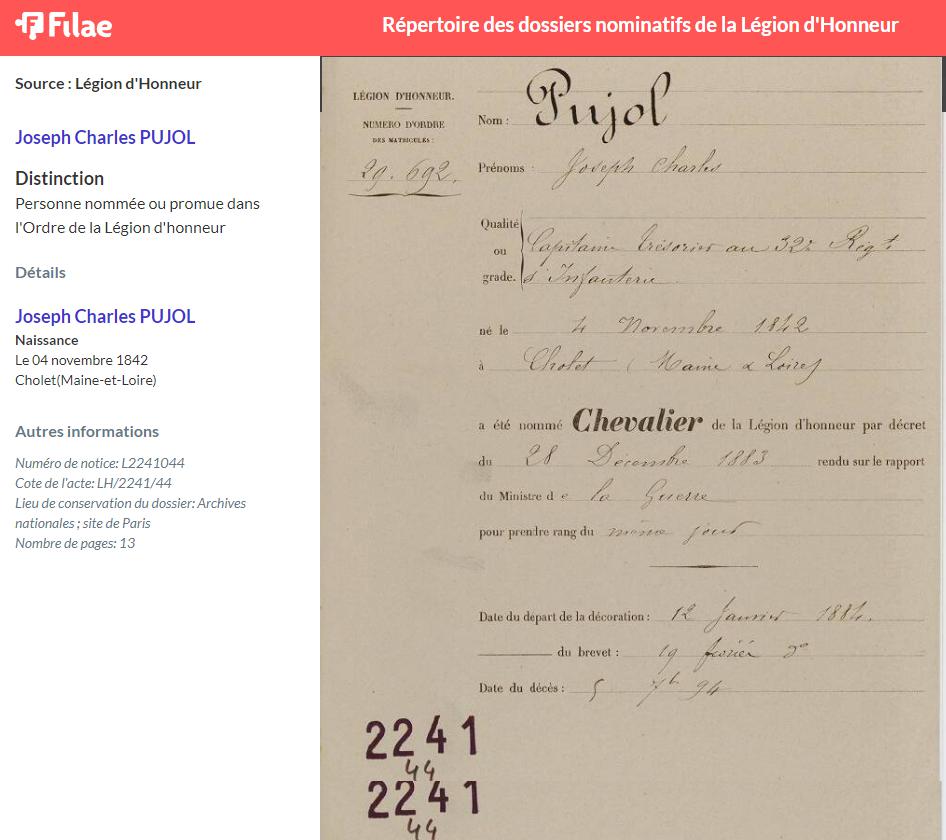 Filae
Répertoire des dossiers nominatifs de la Légion d'Honneur
Source : Légion d'Honneur
Joseph Charles PUJOL
Distinction
Personne nommée ou promue dans
l'Ordre de la Légion d'honneur
Détails
Joseph Charles PUJOL
Naissance
Le 04 novembre 1842
Cholet(Maine-et-Loire)
Autres informations
Numéro de notice: L2241044
Cote de l'acte: LH/2241/44
Lieu de conservation du dossier: Archives
nationales ; site de Paris
Nombre de pages: 13
LÉGION D'HONNEUR.
NUMÉRO D'ORDRE
DES MATRICULES :
29.692.
Nom : Pujol
Prénoms : Joseph Charles
Qualité
ou
grade.
Capitaine trésorier au 32e Régt
d'Infanterie
né le 4 Novembre 1842
à Cholet (Maine & Loire)
a été nommé Chevalier de la Légion d'honneur par décret
du 28 Décembre 1883 rendu sur le rapport
du Ministre de la Guerre
pour prendre rang du même jour
Date du départ de la décoration : 12 Janvier 1884.
du brevet : 19 février do
Date du décès : 5 7b 94
2241
44
2241
44